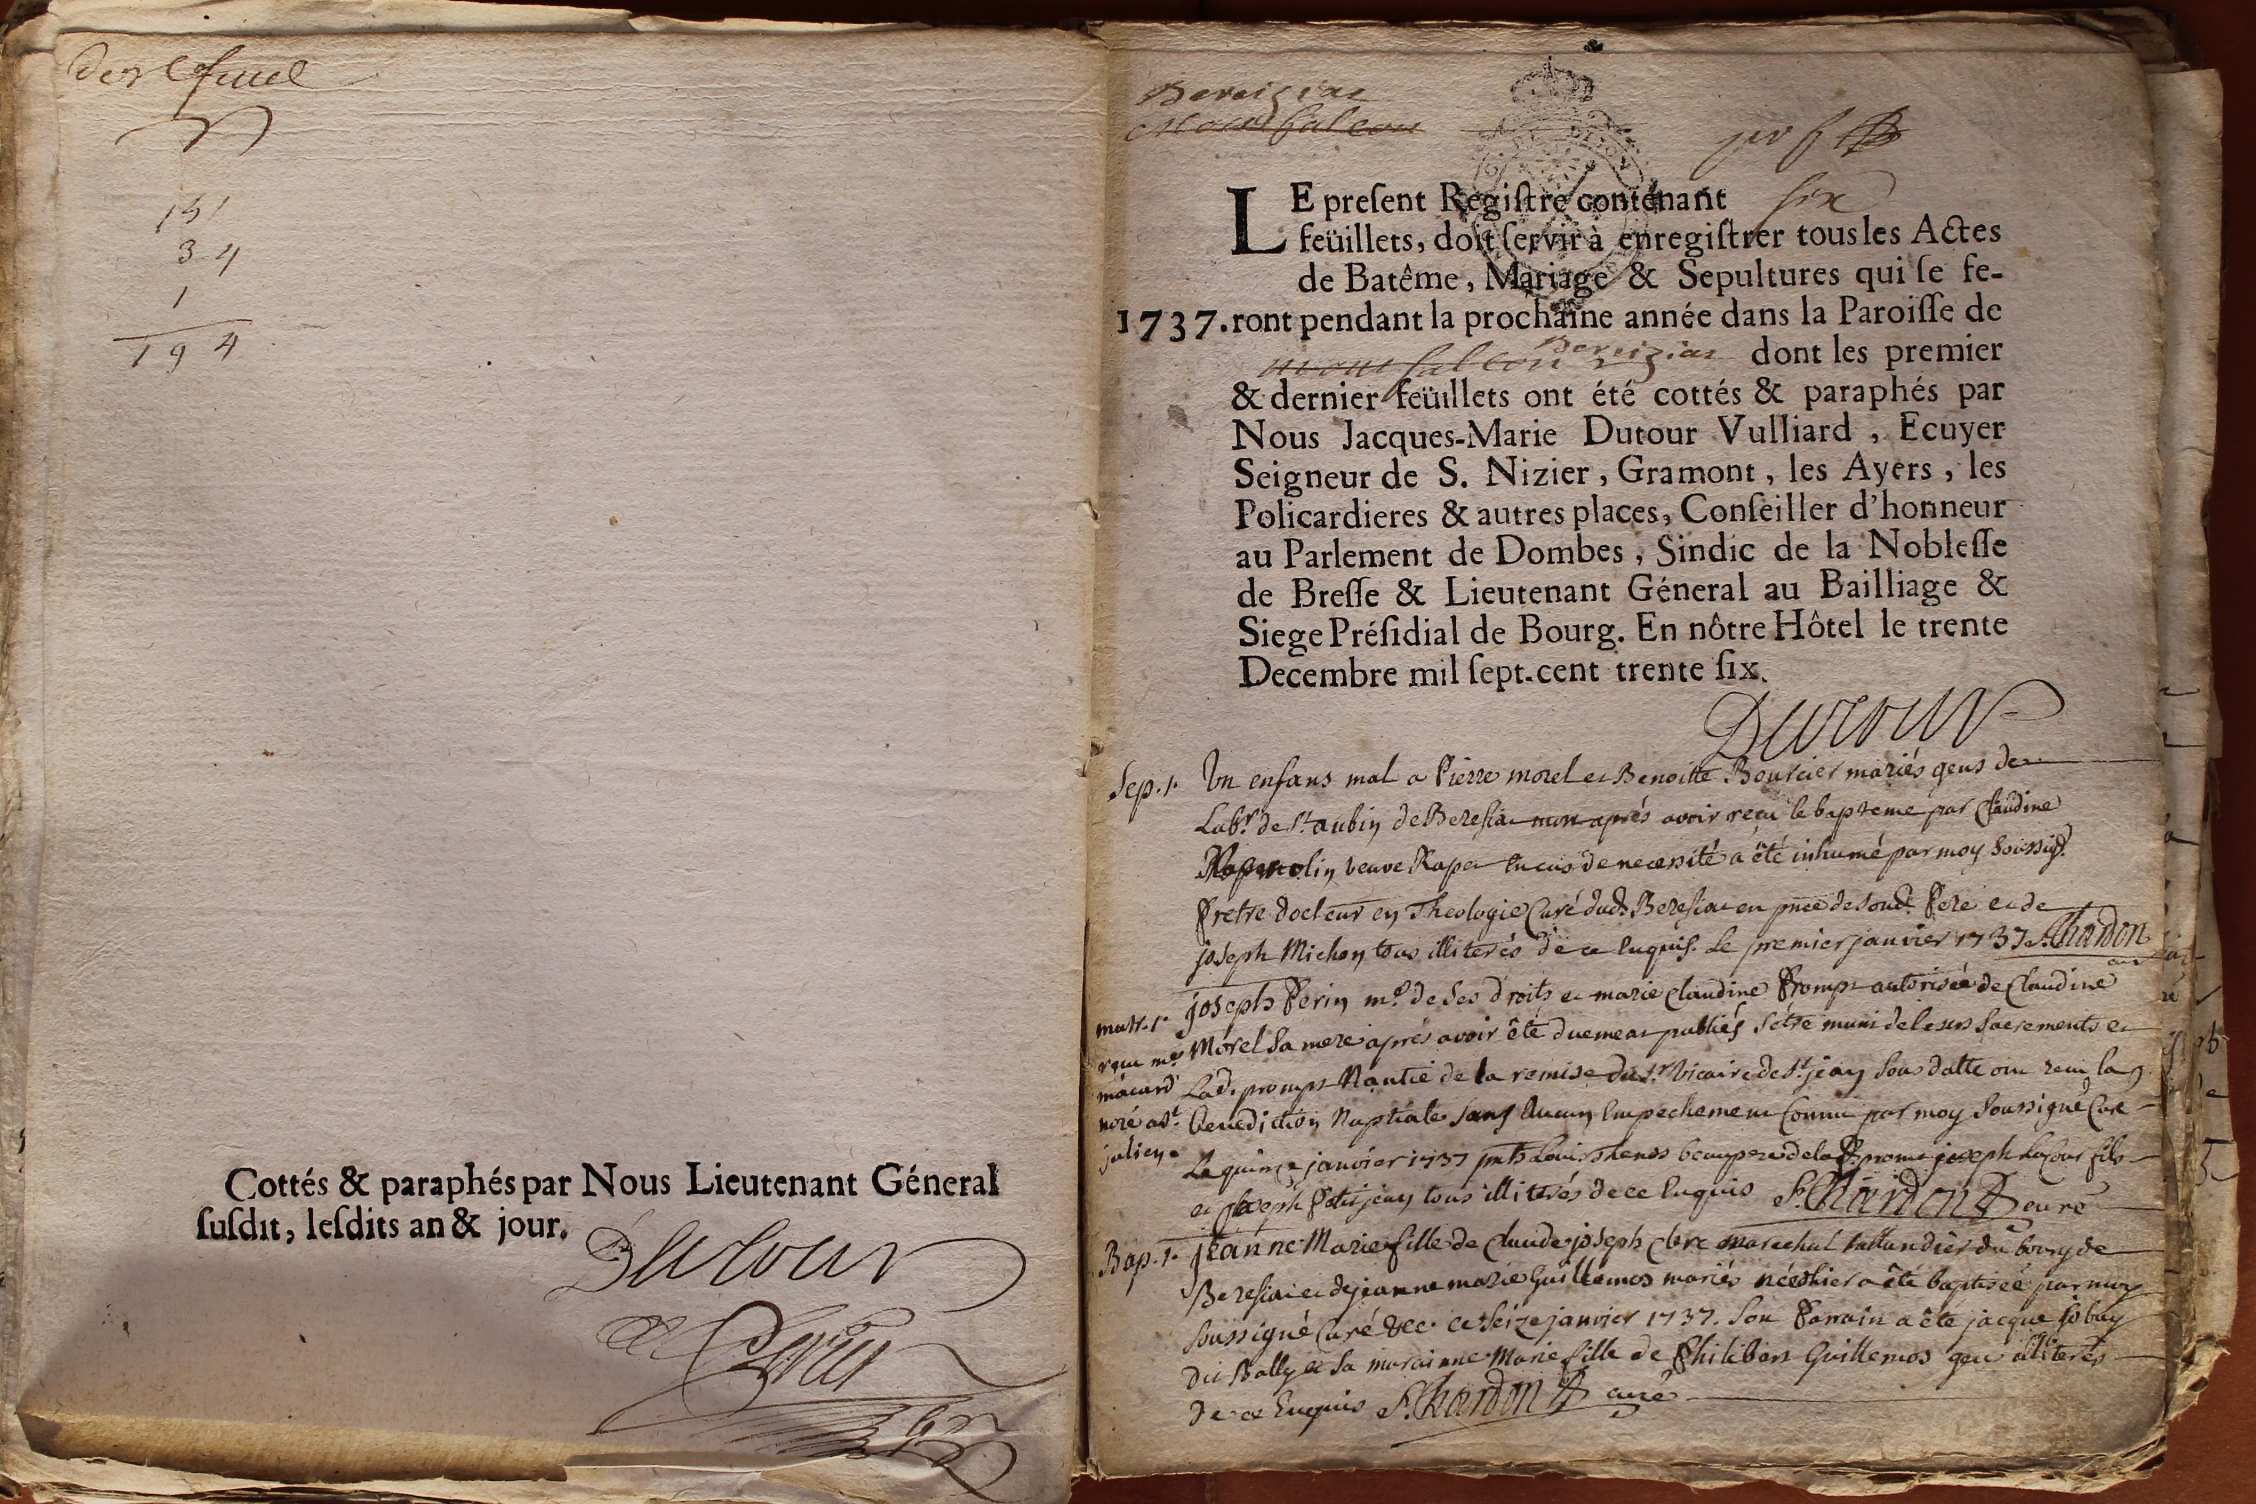 151
34
1
194
Cottés & paraphés par Nous Lieutenant Géneral
ſuſdit, leſdits an & jour.
Dutour
Bereiziat
Montfalcon
LE preſent Regiſtre contenant six
feüillets, doit ſervir à enregiſtrer tous les Actes
de Batême, Mariage & Sepultures qui ſe fe-
1737. ront pendant la prochaine année dans la Paroiſſe de
montfalcon Bereiziat dont les premier
& dernier feüillets ont été cottés & paraphés par
Nous Jacques-Marie Dutour Vulliard, Ecuyer
Seigneur de S. Nizier, Gramont, les Ayers, les
Policardieres & autres places, Conſeiller d'honneur
au Parlement de Dombes, Sindic de la Nobleſſe
de Breſſe & Lieutenant Géneral au Bailliage &
Siege Préſidial de Bourg. En nôtre Hôtel le trente
Decembre mil ſept-cent trente ſix.
Dutour
Sep. 1. Un enfans mal a Pierre morel et Benoitte Bourcier mariés gens de
Labr. de St. aubin de Beresia mort aprés avoir reçu le bapteme par Claudine
veuve Rapet en cas de necessité a été inhumé par moy Soussig.
Pretre docteur en Theologie Curé dud. Beresia en pnce de soud. Pere et de
joseph Michon tous illiterés de ce Enquis. Le premier janvier 1737. Chardon
curé
mar. 1. joseph Perin me. de ses droits et marie Claudine Prompt autorisée de Claudine
Morel Sa mere aprés avoir été duement publiés s'etre muni de leurs Sacrements et
Lad. prompt Nantie de la remise du Sr. Vicaire de St. jean sous datte ont recu la
Benediction Nuptiale Sans Aucun Empechement Connu par moy Soussigné Curé
Le quinze janvier 1737 pnts Louis beaupere de la prompt joseph fils
et joseph Petitjean tous illiterés de ce Enquis S. Chardon curé
Bap. 1. jeanne Marie fille de Claude joseph Clerc marechal taillandier du bourg de
Beresia et de jeanne marie Guillemos mariés née hier a été baptisée par moy
Soussigné Curé &c. ce Seize janvier 1737. Son Parrain a été jacque
dit Bally et Sa maraine Marie fille de Philibert Guillemos gens illiterés
de ce Enquis S. Chardon curé